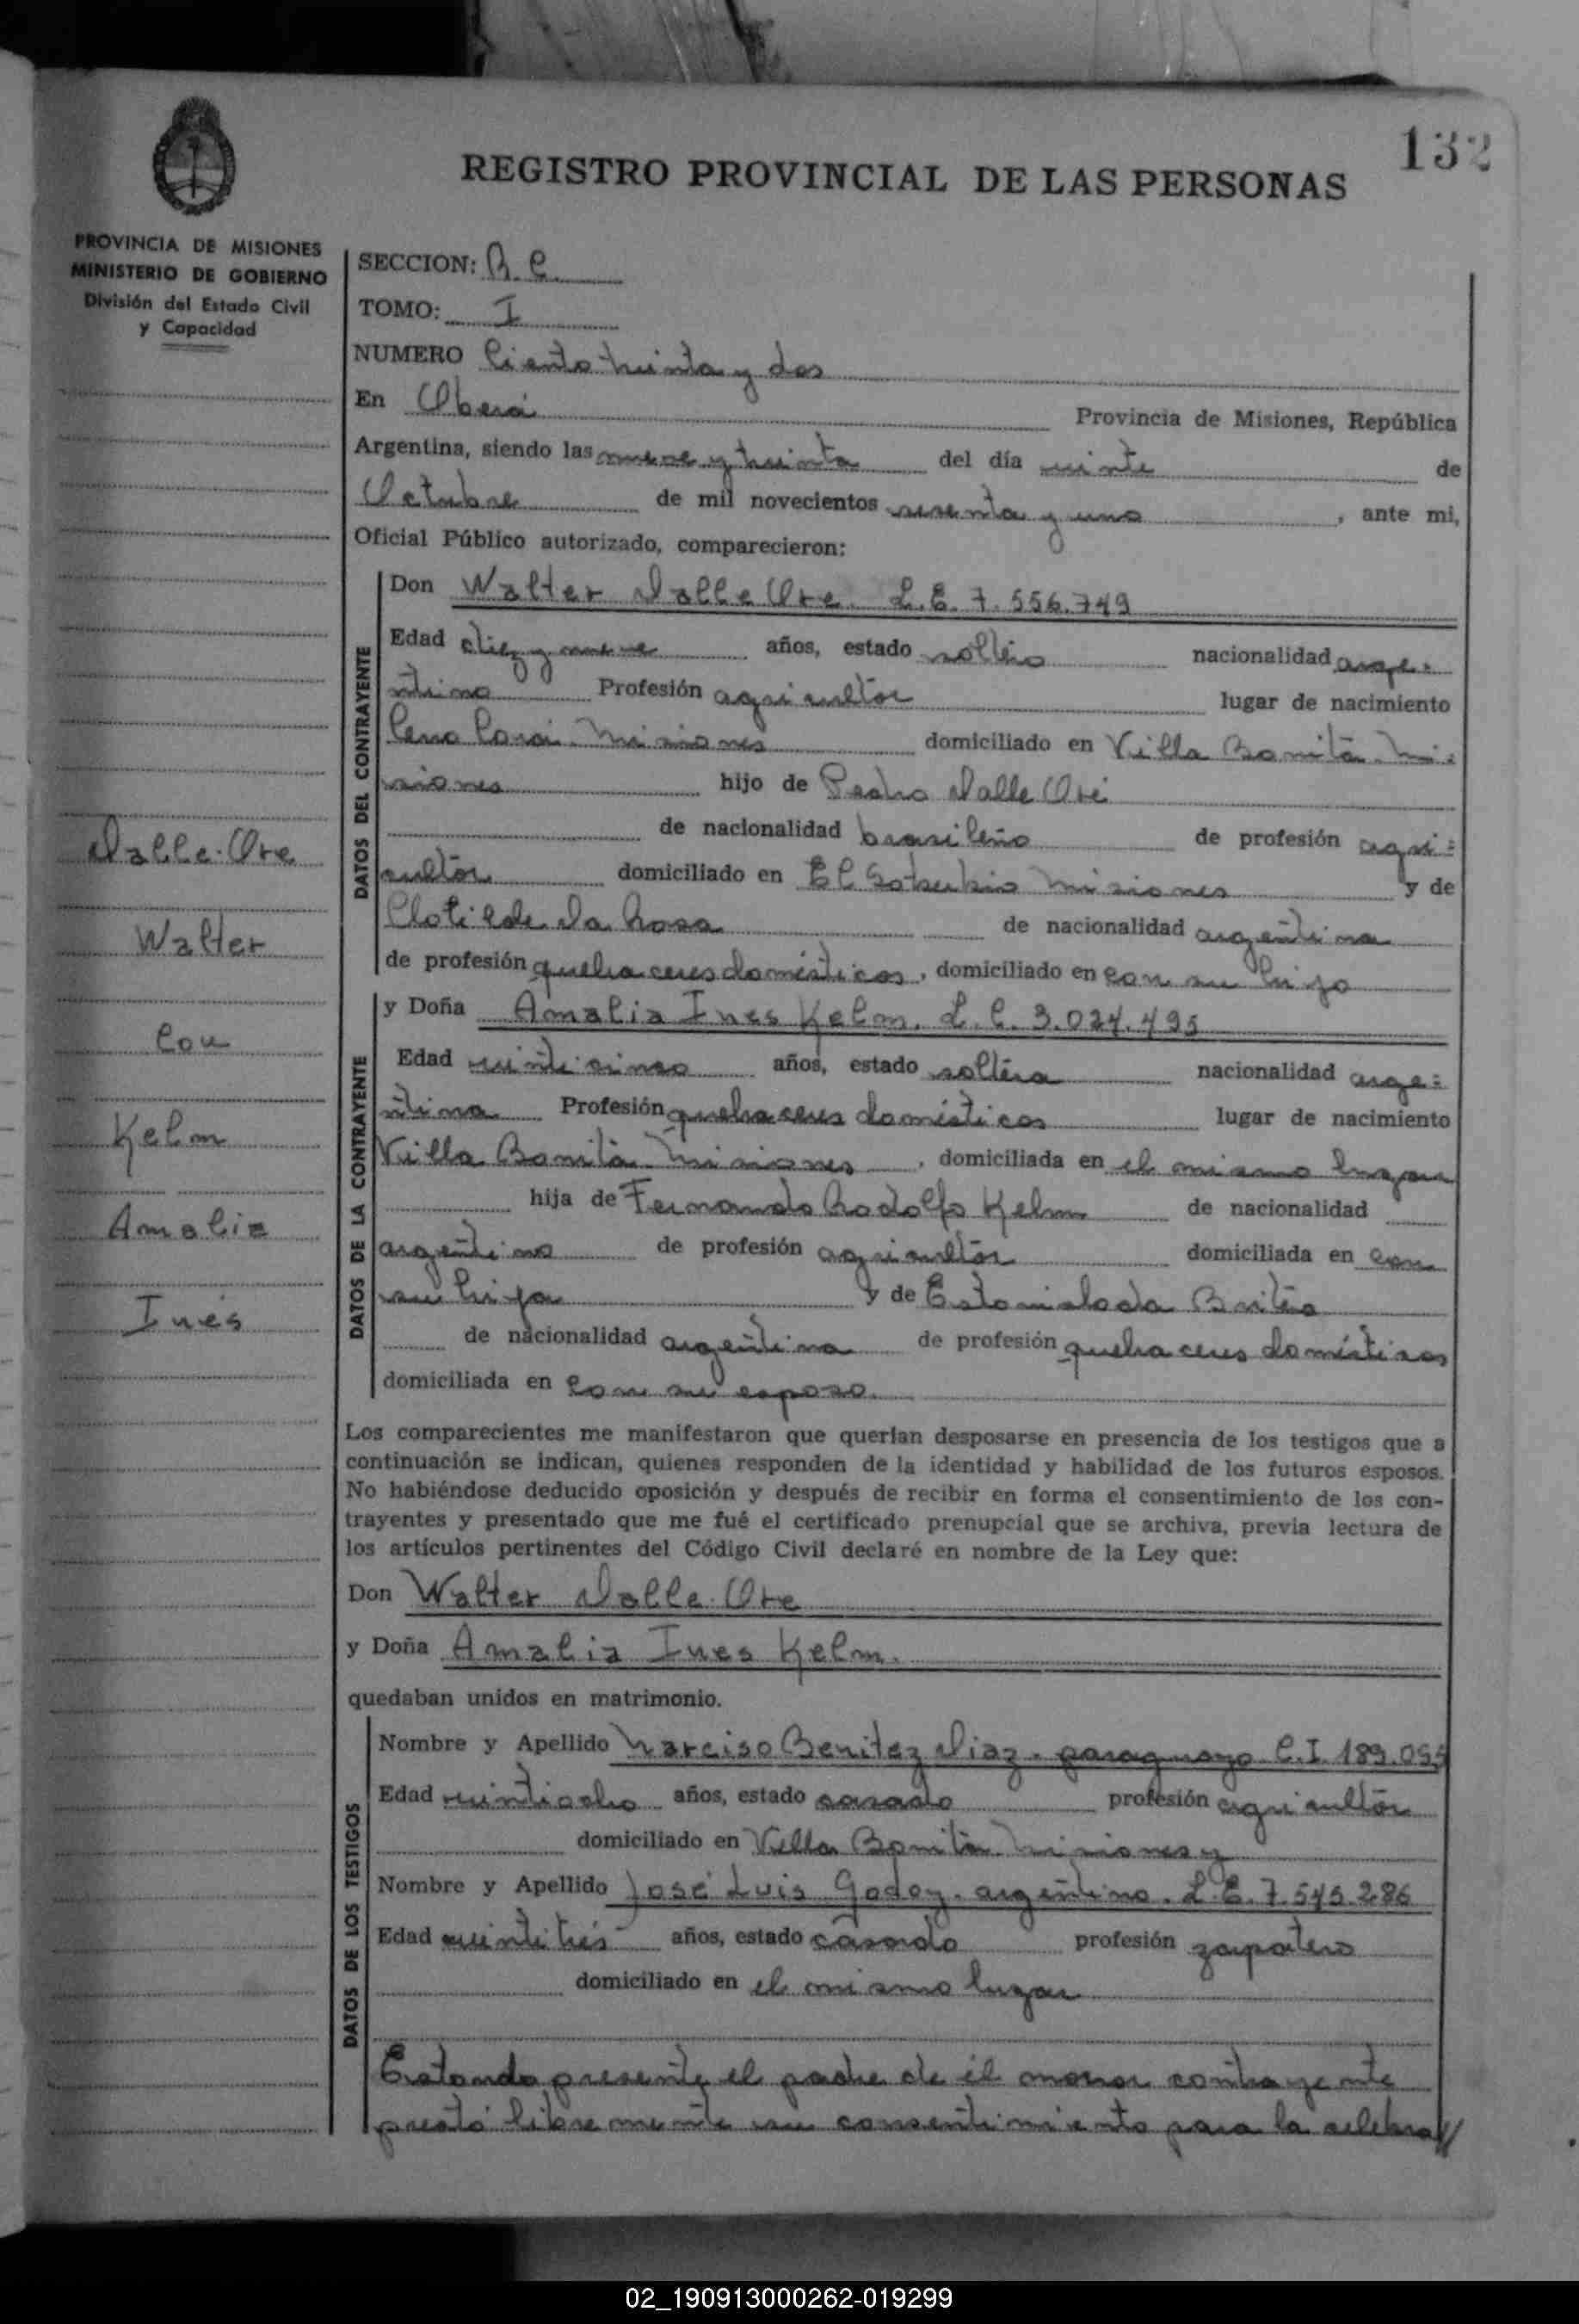 132
REGISTRO PROVINCIAL DE LAS PERSONAS
PROVINCIA DE MISIONES
MINISTERIO DE GOBIERNO
División del Estado Civil
y Capacidad
SECCION: R. C.
TOMO: I
NUMERO Ciento treinta y dos
En Oberá Provincia de Misiones, República
Argentina, siendo las nueve y treinta del día veinte de
Octubre de mil novecientos sesenta y uno, ante mi,
Oficial Público autorizado, comparecieron:
DATOS DEL CONTRAYENTE
Don Walter Dalle Ore. L.E. 7.556.749
Edad diez y nueve años, estado soltero nacionalidad arge=
ntino Profesión agricultor lugar de nacimiento
Cerro Corá. Misiones domiciliado en Villa Bonita. Mi=
siones hijo de Pedro Dalle Ore
de nacionalidad brasileño de profesión agri=
cultor domiciliado en El Misiones y de
Clotilde Da Rosa de nacionalidad argentina
de profesión quehaceres domésticos, domiciliado en con su hijo
DATOS DE LA CONTRAYENTE
y Doña Amalia Ines Kelm. L.C. 3.024.495
Edad veinticinco años, estado soltera nacionalidad arge=
ntina Profesión quehaceres domésticos lugar de nacimiento
Villa Bonita. Misiones, domiciliada en el mismo lugar
hija de Fernando Rodolfo Kelm de nacionalidad
argentino de profesión agricultor domiciliada en con
su hija y de Estanislada Brites
de nacionalidad argentina de profesión quehaceres domésticos
domiciliada en con su esposo.
Los comparecientes me manifestaron que querían desposarse en presencia de los testigos que a
continuación se indican, quienes responden de la identidad y habilidad de los futuros esposos.
No habiéndose deducido oposición y después de recibir en forma el consentimiento de los con-
trayentes y presentado que me fué el certificado prenupcial que se archiva, previa lectura de
los artículos pertinentes del Código Civil declaré en nombre de la Ley que:
Don Walter Dalle. Ore
y Doña Amalia Ines Kelm.
quedaban unidos en matrimonio.
DATOS DE LOS TESTIGOS
Nombre y Apellido Narciso Benitez Diaz. paraguayo C.I. 189.055
Edad veintiocho años, estado casado profesión agricultor
domiciliado en Villa Bonita. Misiones y
Nombre y Apellido José Luis Godoy. argentino. L.E. 7.545.286
Edad veintitrés años, estado casado profesión zapatero
domiciliado en el mismo lugar
Estando presente el padre de el menor contrayente
prestó libremente su consentimiento para la celebra//
Dalle. Ore
Walter
Con
Kelm
Amalia
Inés
02_190913000262-019299